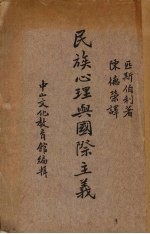 匹斯伯利著
陳德榮譯
民族心理與國際主義
中山文化敎育館編輯